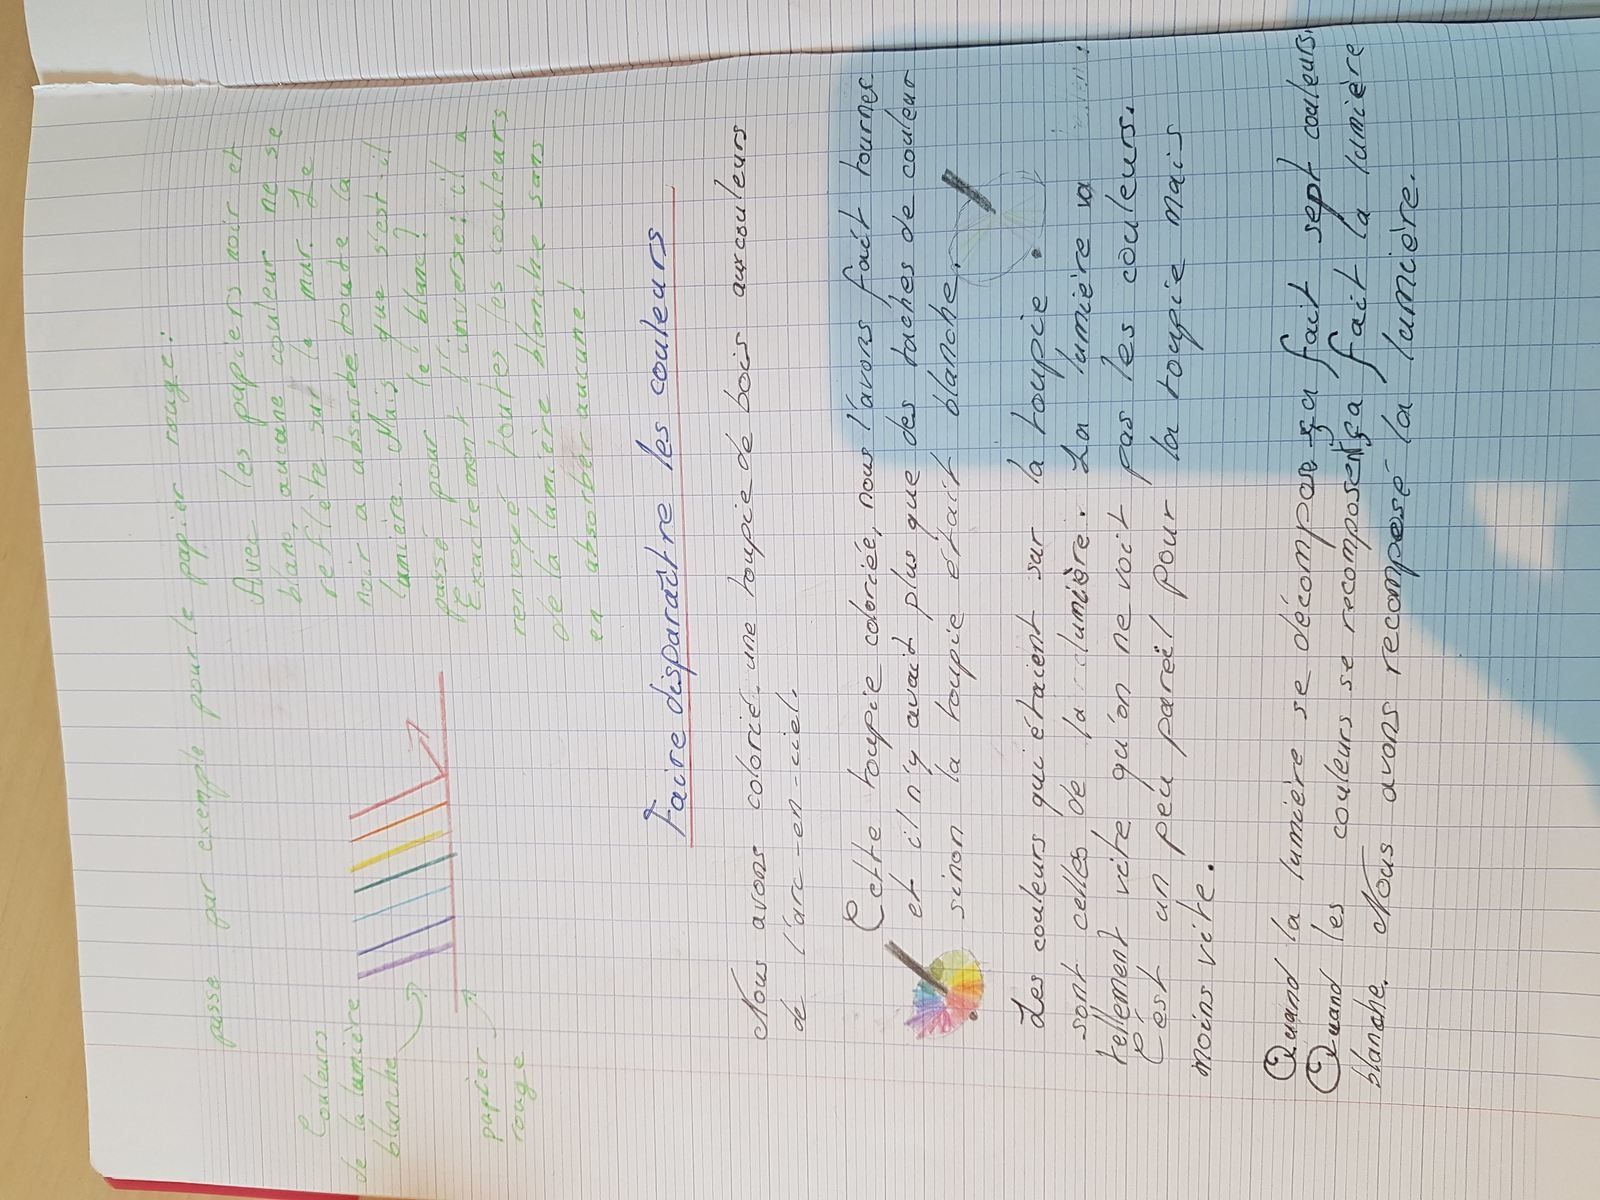 passe par exemple pour le papier rouge :
Couleurs
de la lumière
blanche
papier
rouge
Avec les papiers noir et
blanc, aucune couleur ne se
reflète sur le mur. Le
noir a absorbé toute la
lumière. Mais que s'est-il
passé pour le blanc ?
Exactement l'inverse : il a
renvoyé toutes les couleurs
de la lumière blanche sans
en absorber aucune !
Faire disparaître les couleurs
Nous avons colorié une toupie de bois aux couleurs
de l'arc-en-ciel.
Cette toupie coloriée, nous l'avons fait tourner
et il n'y avait plus que des taches de couleur
sinon la toupie était blanche.
Les couleurs qui étaient sur la toupie
sont celles de la lumière. La lumière va
tellement vite qu'on ne voit pas les couleurs.
C'est un peu pareil pour la toupie mais
moins vite.
Quand la lumière se décompose ça fait sept couleurs.
Quand les couleurs se recomposent ça fait la lumière
blanche. Nous avons recomposé la lumière.